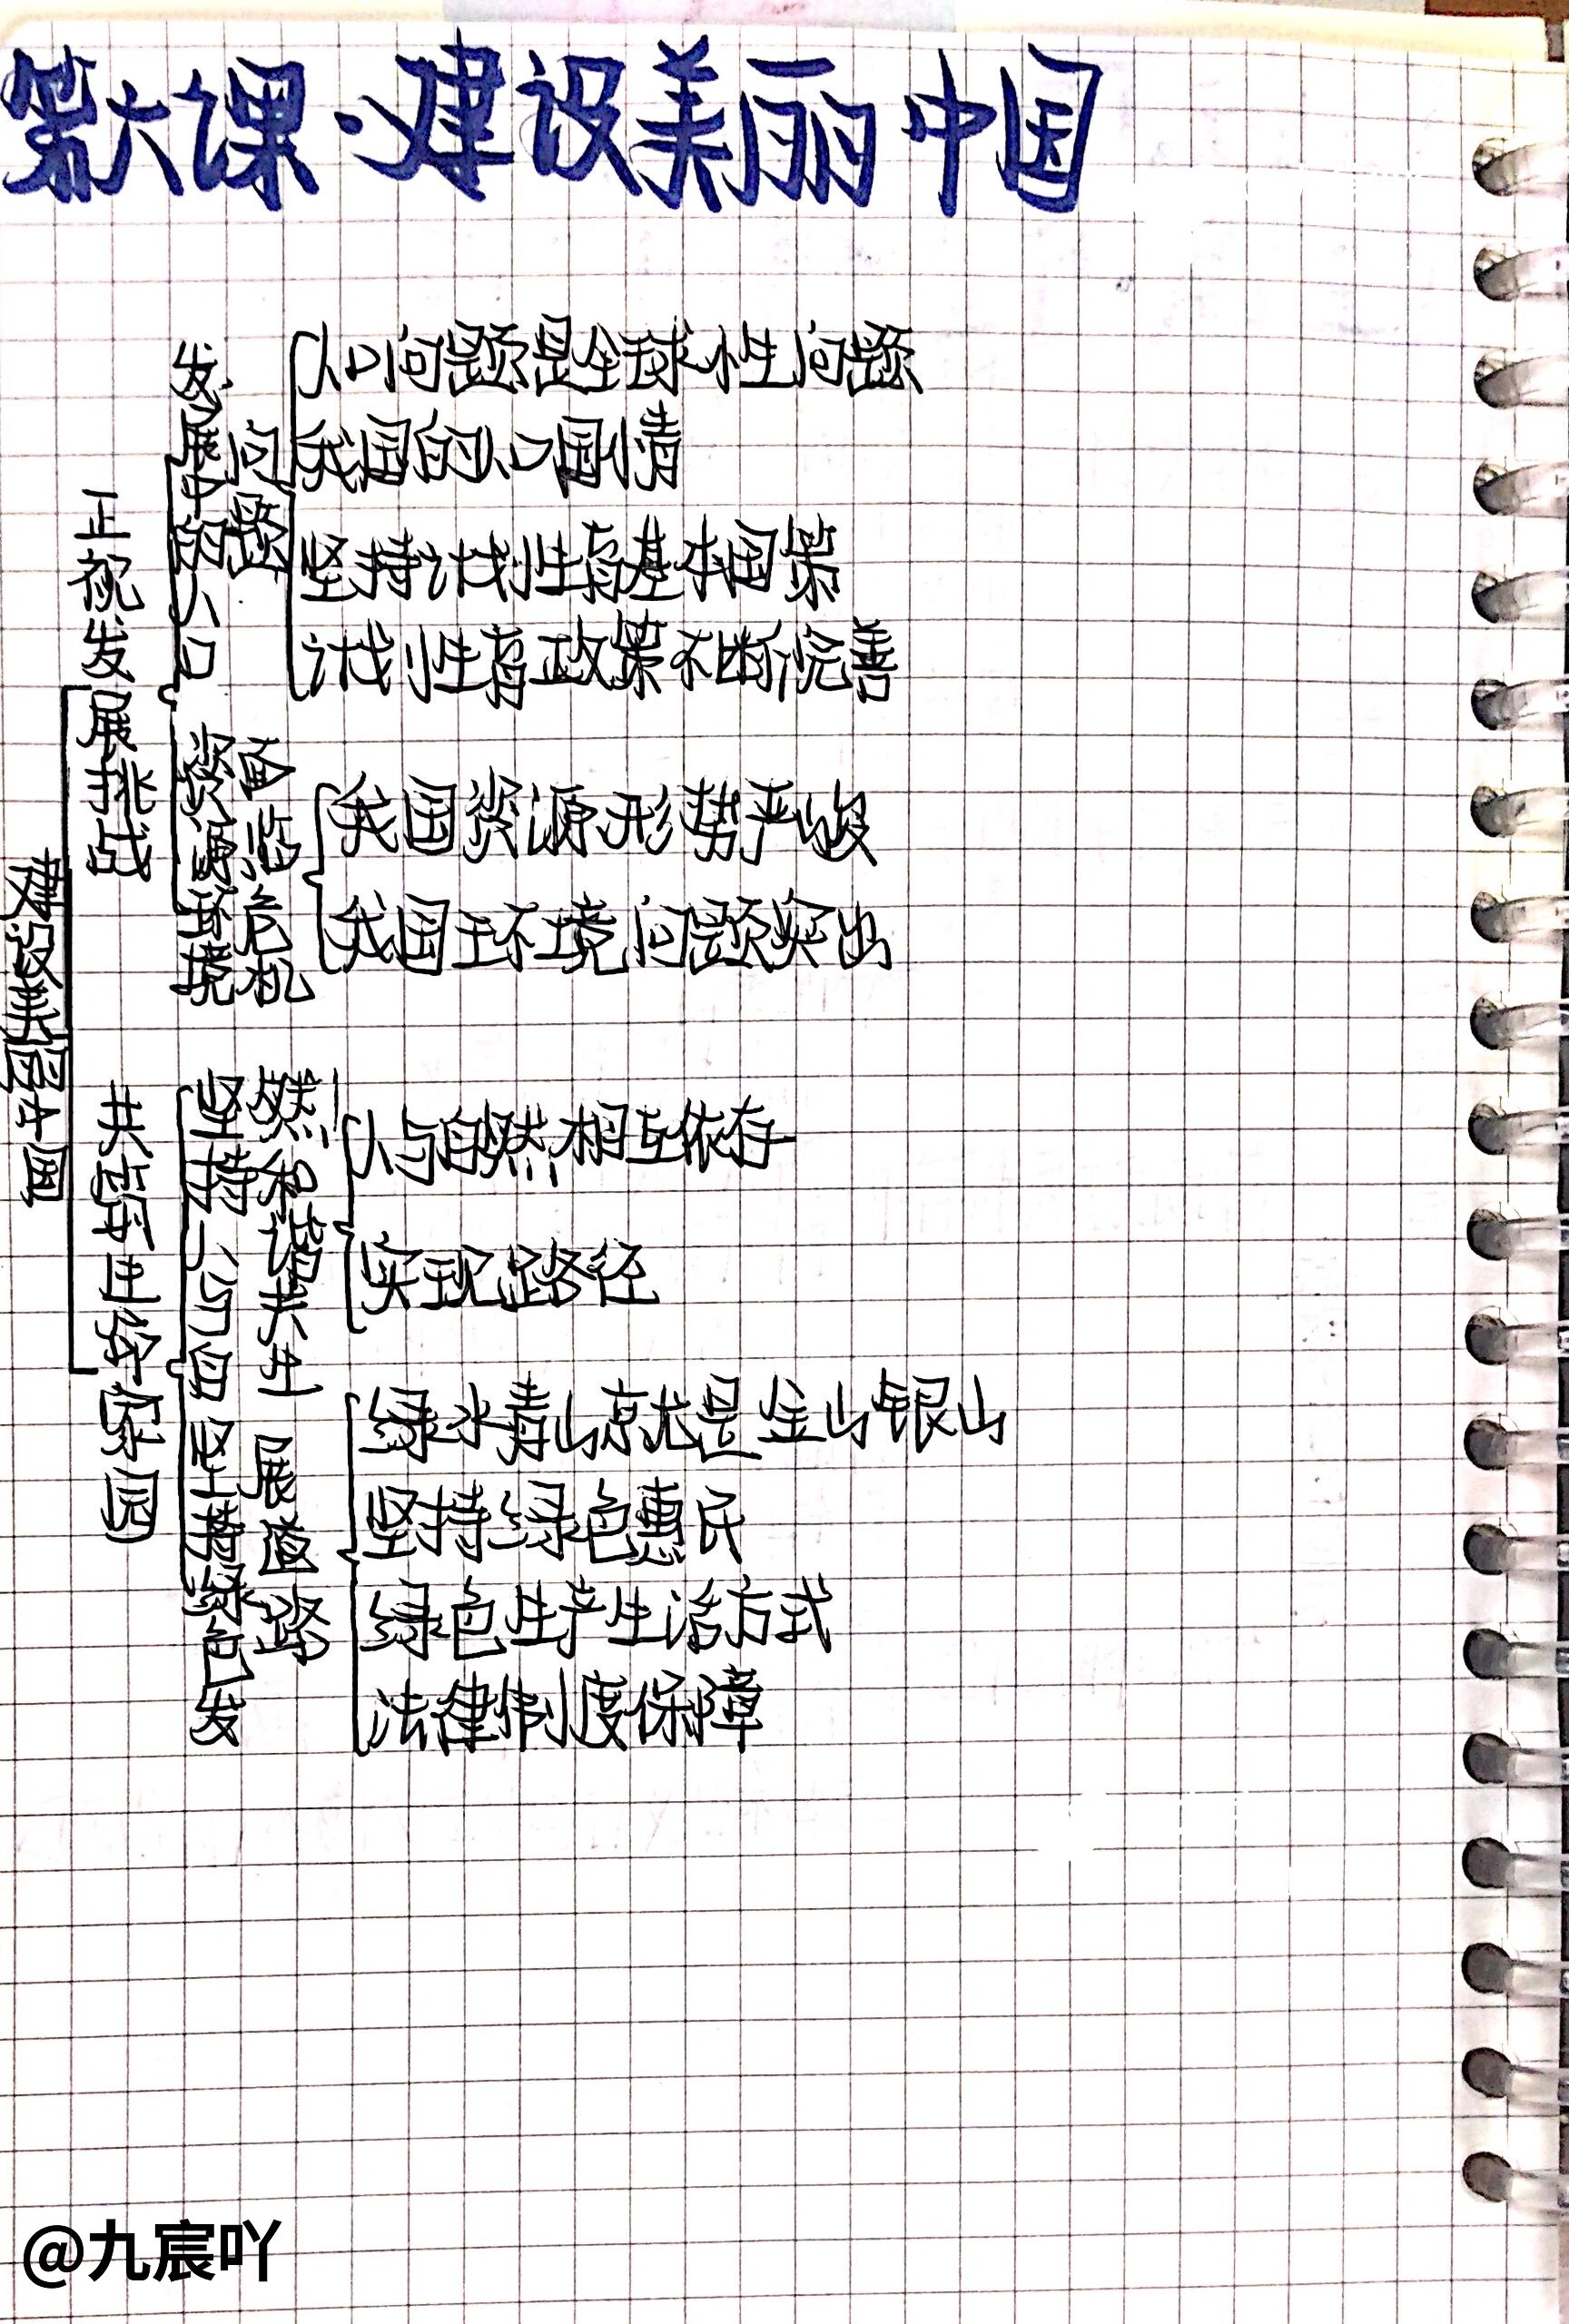 第六课·建设美丽中国
建设美丽中国
正视发展挑战
发展中的人口问题
人口问题是全球性问题
我国的人口国情
坚持计划生育基本国策
计划生育政策不断完善
资源环境面临危机
我国资源形势严峻
我国环境问题突出
共筑生命家园
坚持人与自然和谐共生
人与自然相互依存
实现路径
坚持绿色发展道路
绿水青山就是金山银山
坚持绿色惠民
绿色生产生活方式
法律制度保障
@九宸吖